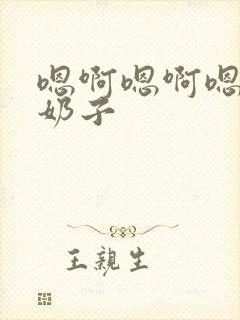 嗯啊嗯啊嗯
奶子
王親生